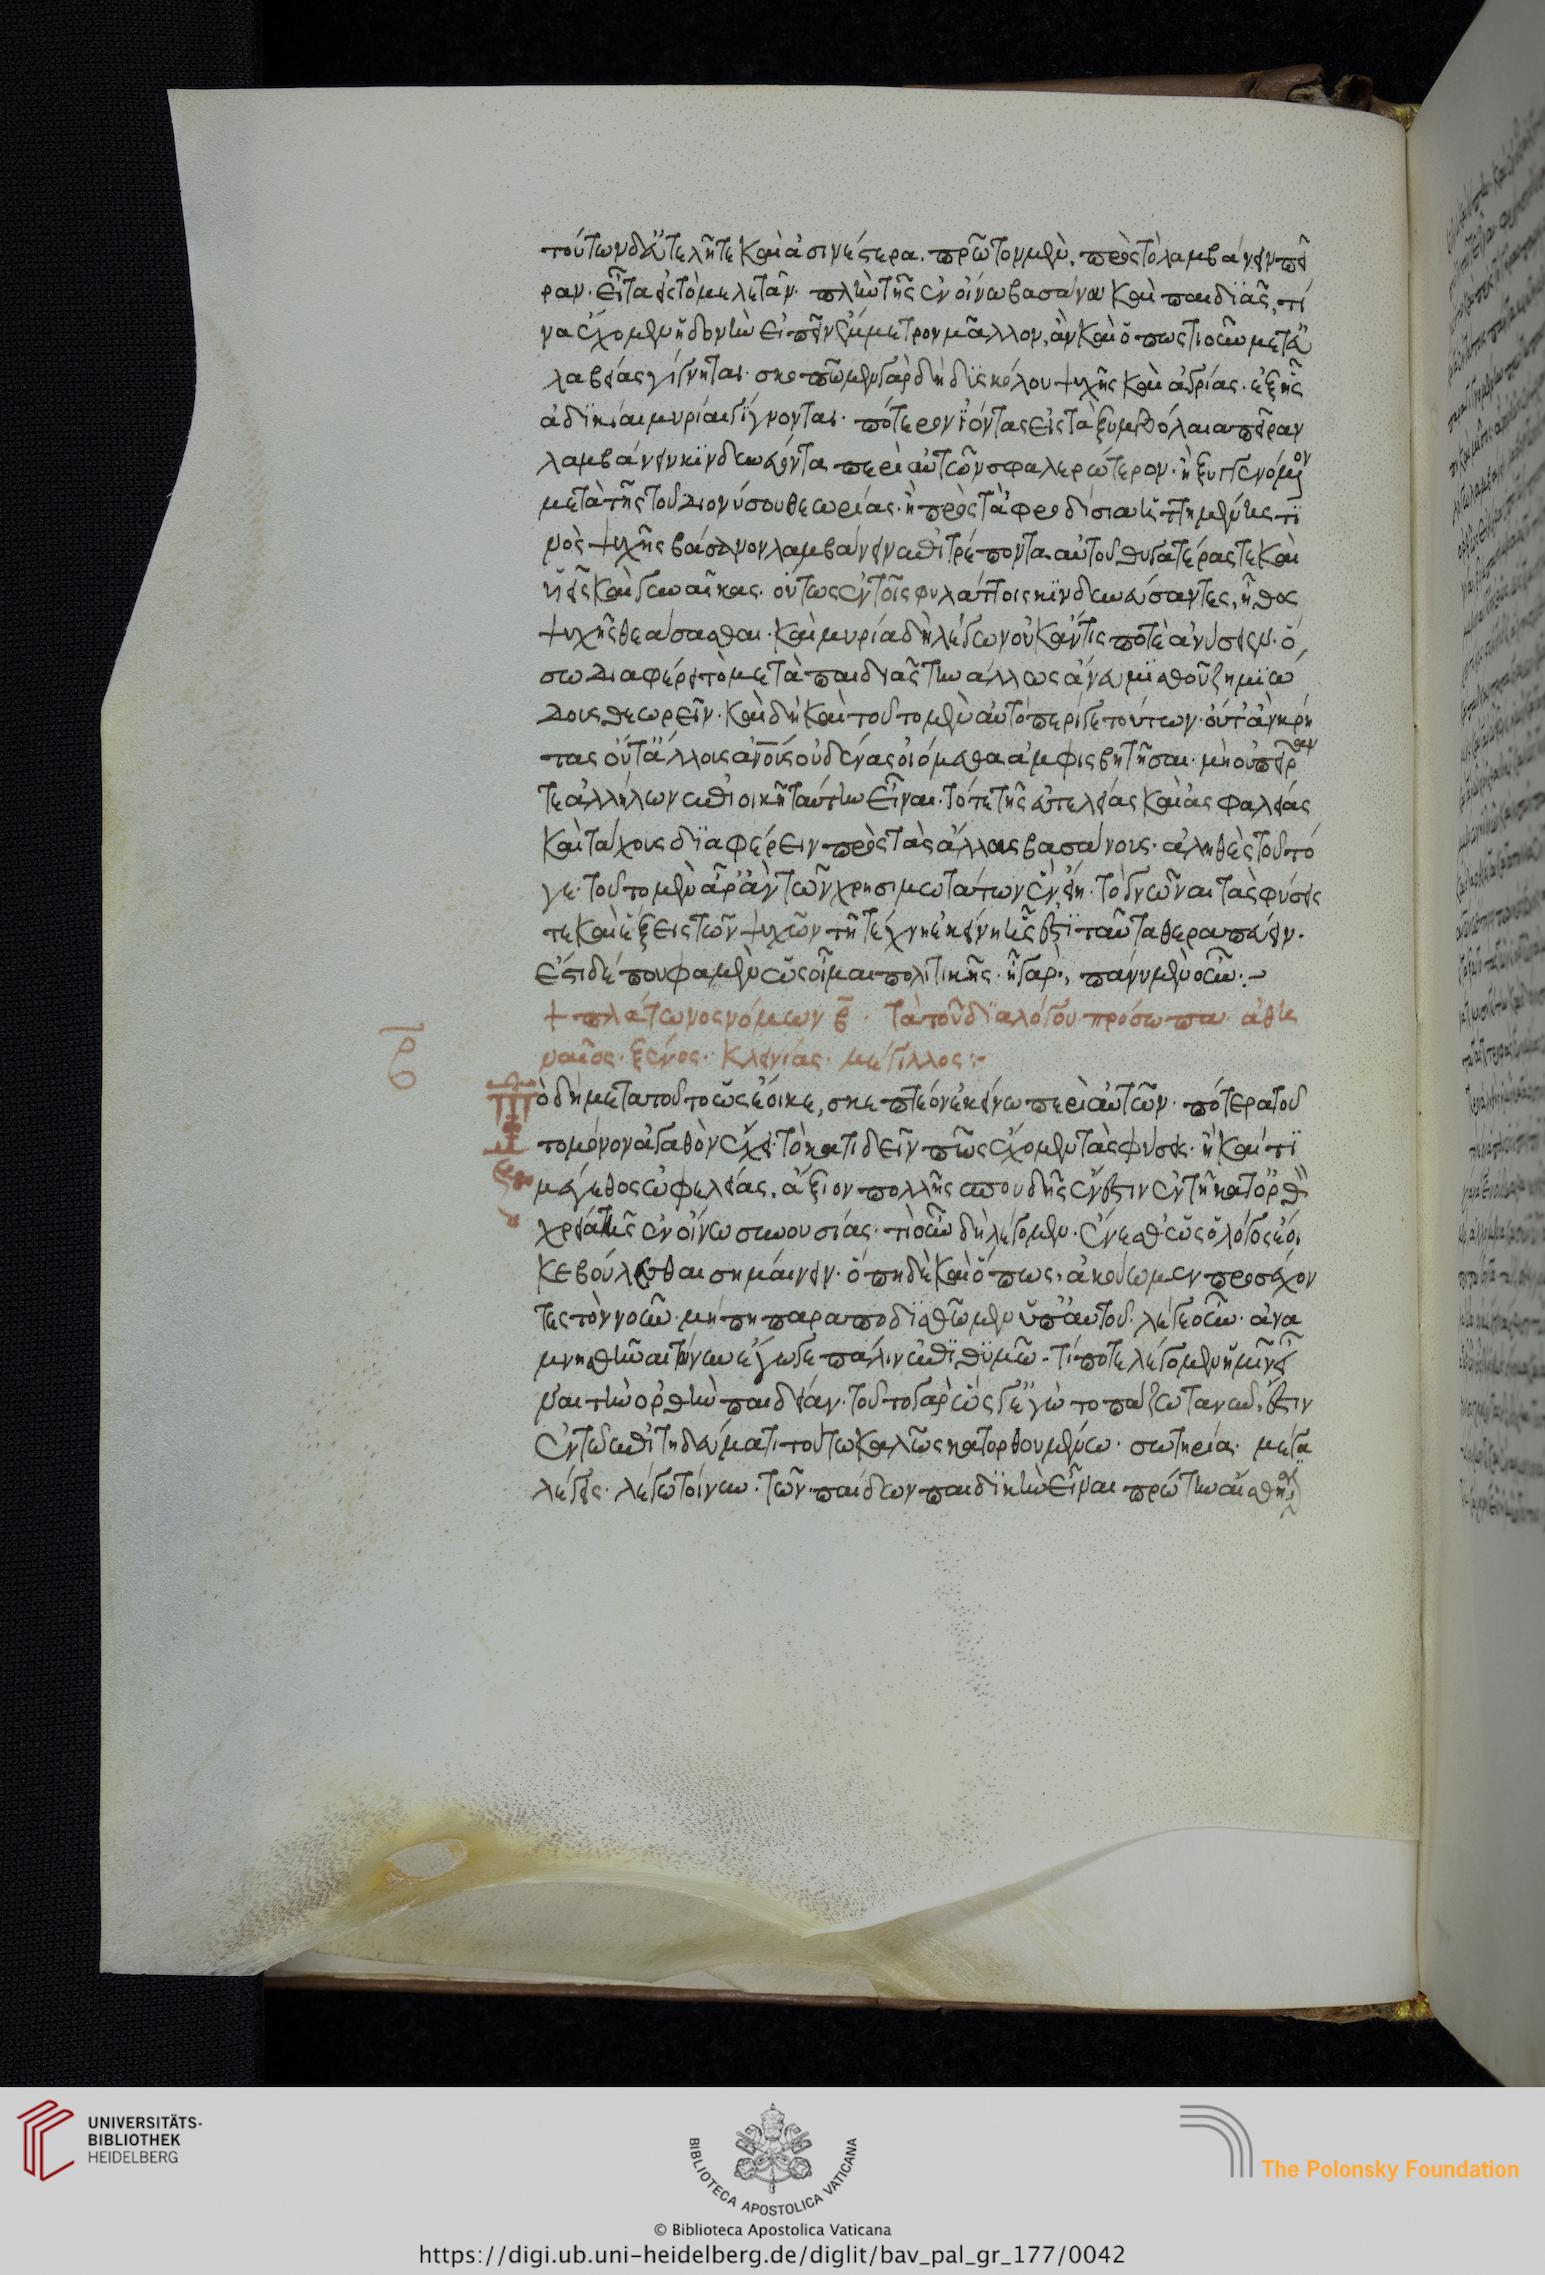 τούτων δ' εὐτελῆ τε καὶ ἀσινέστερα. πρῶτον μὲν, πρὸς τὸ λαμβάνειν πεῖ
ραν. εἶτα εἰς τὸ μελετᾶν. πλὴν τῆς ἐν οἴνω βασάνου καὶ παιδιᾶς, τί
να ἔχομεν ἡδονὴν εἰπεῖν ξύμμετρον μᾶλλον, ἂν καὶ ὁπωστιοῦν μετ' εὐ
λαβείας γίγνηται. σκοπῶμεν γὰρ δὴ δϊσκόλου ψυχῆς καὶ ἀγρίας. ἐξ ἧς
ἀδϊκίαι μυρίαι γίγνονται. πότερον ἰόντας εἰς τὰ ξυμβόλαια πεῖραν
λαμβάνειν κϊνδυνεύοντα περὶ αὐτῶν σφαλερώτερον. ἢ ξυγγενόμενον
μετὰ τῆς τοῦ διονύσου θεωρίας. ἢ πρὸς τἀφροδίσια ἡττημένης τϊ
νὸς ψυχῆς βάσανον λαμβάνειν ἐπιτρέποντα αὐτοῦ θυγατέρας τε καὶ
ὑεῖς καὶ γυναῖκας. οὕτως ἐν τοῖς φιλτάτοις κϊνδυνεύσαντες, ἦθος
ψυχῆς θεάσασθαι. καὶ μυρία δὴ λέγων οὐκ ἄν τις ποτὲ ἀνύσειεν. ὅ
σω διαφέρει τὸ μετὰ παιδιᾶς τὴν ἄλλως ἄνευ μϊσθοῦ ζημϊώ
δους θεωρεῖν. καὶ δὴ καὶ τοῦτο μὲν αὐτὸ περί γε τούτων. οὔτ' ἂν κρῆ
τας οὔτ' ἄλλους ἀν̅ο̅υς οὐδένας οἰόμεθα ἀμφισβητῆσαι. μὴ οὐ πεῖραν
τε ἀλλήλων ἐπιεικῆ ταύτην εἶναι. τό τε τῆς εὐτελείας καὶ ἀσφαλείας
καὶ τάχους δϊαφέρειν πρὸς τὰς ἄλλας βασάνους. ἀληθὲς τοῦτό
γε. τοῦτο μὲν ἆρ' ἂν τῶν χρησιμωτάτων ἓν εἴη. τὸ γνῶναι τὰς φύσεις
τε καὶ ἕξεις τῶν ψυχῶν τῆ τέχνη ἐκείνη ἧς ἐστϊ ταῦτα θεραπεύειν.
ἔστι δέ που φαμὲν ὡς οἶμαι πολιτικῆς. ἦ γάρ., πάνυ μὲν οὖν:-
+ πλάτωνος νόμων β̅. τὰ τοῦ δϊαλόγου πρόσωπα. ἀθη
ναῖος. ξένος. κλεινίας. μέγιλλος:-
β̅
Τὸ δὴ μετα τοῦτο ὡς ἔοικε, σκεπτέον ἐκείνω περὶ αὐτῶν. πότερα τοῦ
το μόνον ἀγαθὸν ἔχει. τὸ κατιδεῖν πῶς ἔχομεν τὰς φύσεις. ἢ καί τϊ
μέγεθος ὠφελείας. ἄξιον πολλῆς σπουδῆς ἔνεστιν ἐν τῆ κατ' ὀρθὸν
χρεία τῆς ἐν οἴνω συνουσίας. τί οὖν δὴ λέγομεν. ἔνεσθ' ὡς ὁ λόγος ἔοι
κε βούλεσθαι σημαίνειν. ὅπη δὲ καὶ ὅπως. ἀκούωμεν προσέχον
τες τὸν νοῦν. μή πη παραποδϊσθῶμεν ὑπ' αὐτοῦ. λέγε οὖν. ἀνα
μνησθῆναι τοίνυν ἔγωγε πάλιν ἐπιθϋμῶ. τί ποτε λέγομεν ἡμῖν εἶ
ναι τὴν ὀρθὴν παιδείαν. τοῦτο γὰρ ὥς γε ἐγὼ τοπάζω τανῦν. ἔστιν
ἐν τῶ ἐπιτηδεύματι τούτω καλῶς κατορθουμένω. σωτηρία. μέγα
λέγεις. λέγω τοίνυν. τῶν παίδων παιδϊκὴν εἶναι πρώτην αἴσθησιν
UNIVERSITÄTS-
BIBLIOTHEK
HEIDELBERG
BIBLIOTECA APOSTOLICA VATICANA
The Polonsky Foundation
© Biblioteca Apostolica Vaticana
https://digi.ub.uni-heidelberg.de/diglit/bav_pal_gr_177/0042